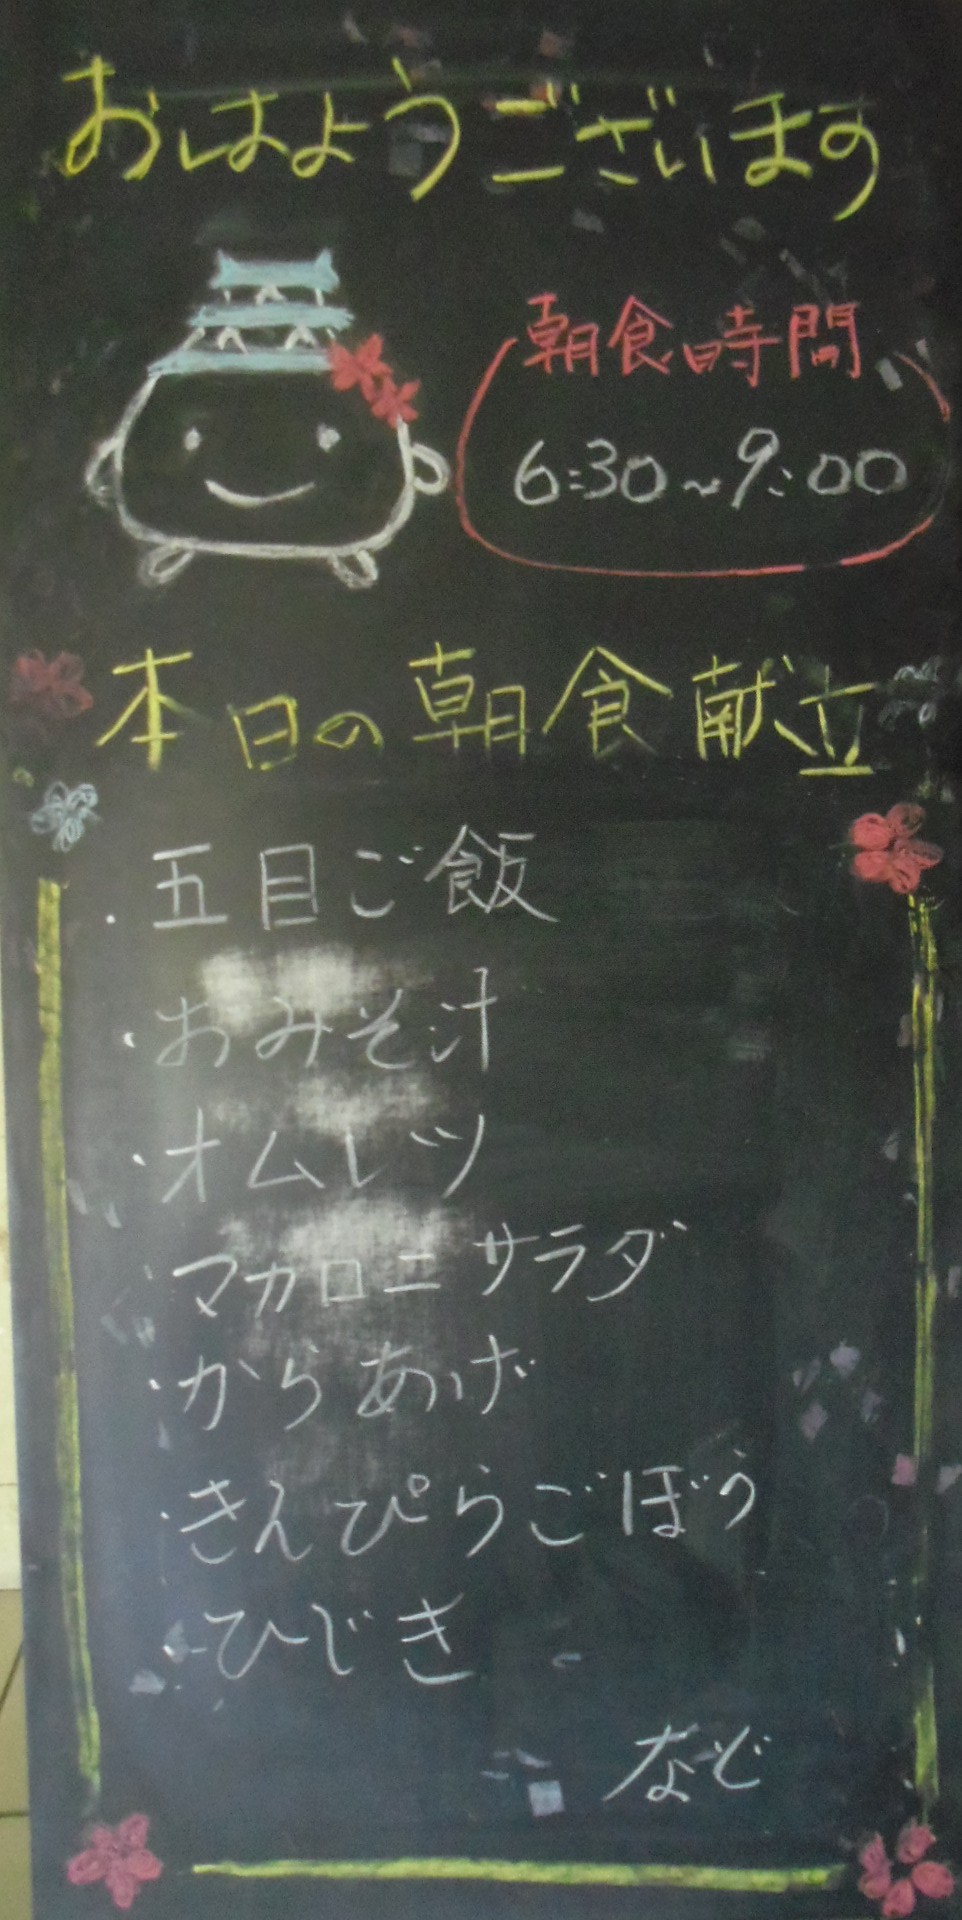 おはようございます
朝食時間
6:30~9:00
本日の朝食献立
・五目ご飯
・おみそ汁
・オムレツ
・マカロニサラダ
・からあげ
・きんぴらごぼう
・ひじき
など